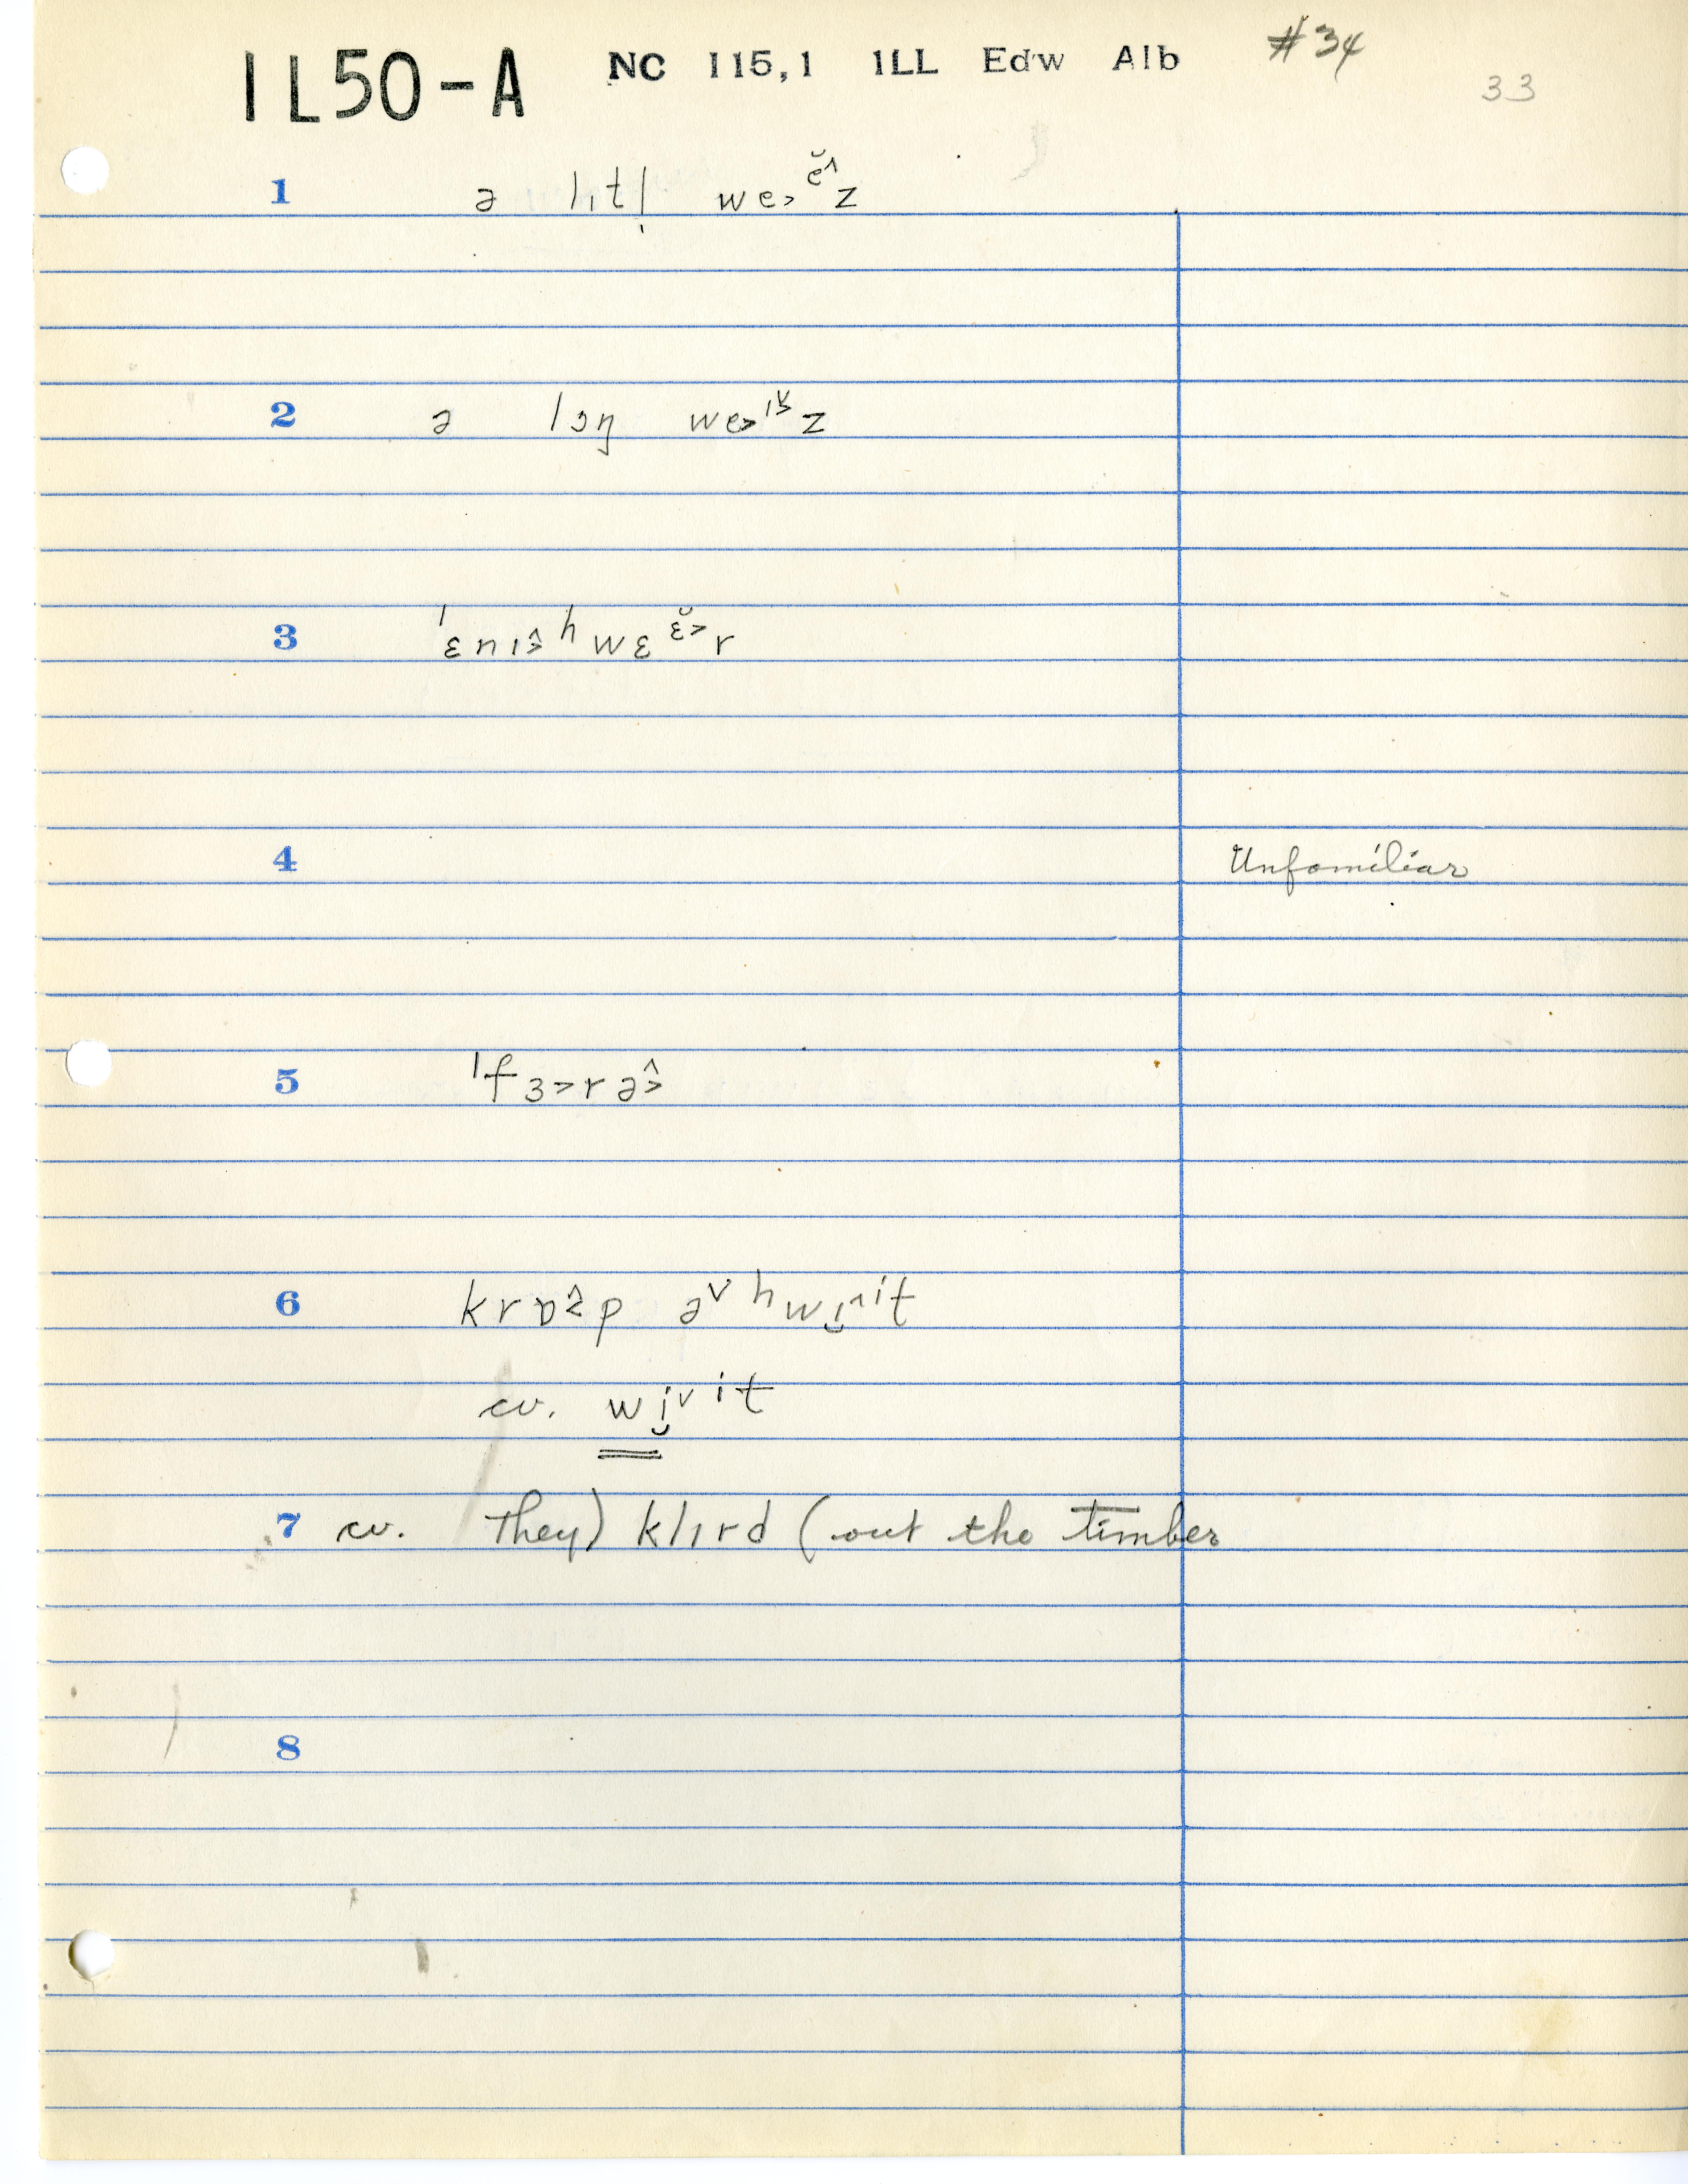 IL50-A NC 115,1 ILL Edw Alb #34
33
1 ə lɪtl̩ we˃ĕ˄z
2 ə lɔŋ we˃ɪ˅z
3 ˈɛnɪ˃˄ hwɛɛ̆˃r
4 Unfamiliar
5 ˈfɜ˃rə˃˄
6 krɒ˄p ə˅ hwɪ̯˄it
cv. wi̯˅it
7 cv. They) klɪrd (out the timber
8